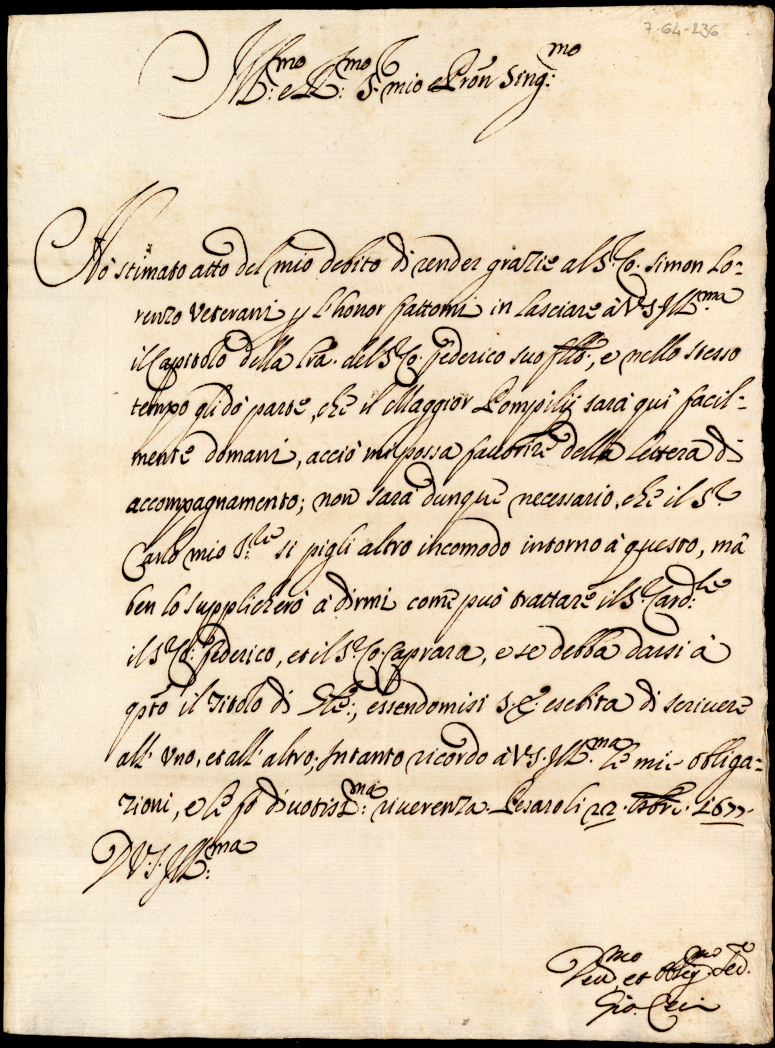 7-64-236
Ill.mo e R.mo S.r mio e Pron Sing.mo
Hò stimato atto del mio debito di render grazie al S.r Co. Simon Lo=
renzo Veterani p l'honor fattomi in lasciare à V.S. Ill.ma
il Capitolo della lra. del S.r Co. federico suo fllo:, e nello stesso
tempo gli dò parte, che il Maggior Pompilij sarà quì facil=
mente domani, acciò mi possa fauorire della lettera di
accompagnamento; non sarà dunque necessario, che il S.r
Carlo mio S.re si pigli altro incomodo intorno à questo, mà
ben lo supplicherò à dirmi come può trattare il S.r Card.le
il S.r Co: federico, et il S.r Co. Caprara, e se debba darsi à
qsto il Titolo di Ill.e:, essendomisi S. E. esebita di scriuere
all' vno, et all' altro; Intanto ricordo à V.S. Ill.ma le mie obliga=
zioni, e le fò diuotiss.ma: riuerenza. Pesaro li 22. 1677.
D V.S. Ill.ma
Deu.mo et Obblig.mo Ser.e
Gio. Ceci